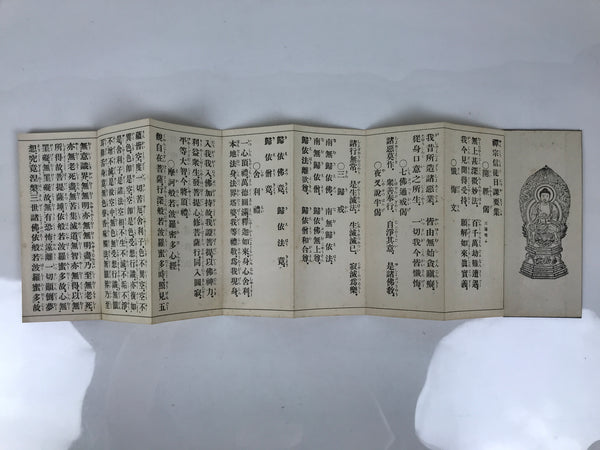 禪宗信徒日課要集
〇開經偈
無上甚深微妙法、百千萬劫難遭遇、
我今見聞得受持、願解如來眞實義、
〇懺悔文
我昔所造諸惡業、皆由無始貪瞋癡、
從身口意之所生、一切我今皆懺悔、
〇七佛通戒偈
諸惡莫作、衆善奉行、自淨其意、是諸佛教、
〇夜叉說半偈
諸行無常、是生滅法、生滅滅已、寂滅爲樂、
〇三歸戒
南無歸依佛、南無歸依法、
南無歸依僧、歸依佛無上尊、
歸依法離欲尊、歸依僧和合尊、
歸依佛竟、歸依法竟、
歸依僧竟、
〇舍利禮
一心頂禮、萬德圓滿、釋迦如來、身心舍利、
本地法身、法界塔婆、我等禮敬、爲我現身、
入我我入、佛加持故、我證菩提、以佛神力、
利益衆生、發菩提心、修菩薩行、同入圓寂、
平等大智、今將頂禮、
〇摩訶般若波羅蜜多心經
觀自在菩薩行深般若波羅蜜多時照見五
蘊皆空度一切苦厄舍利子色不異空空不
異色色即是空空即是色受想行識亦復如
是舍利子是諸法空相不生不滅不垢不淨
不增不減是故空中無色無受想行識無眼
耳鼻舌身意無色聲香味觸法無眼界乃至
無意識界無無明亦無無明盡乃至無老死
亦無老死盡無苦集滅道無智亦無得以無
所得故菩提薩埵依般若波羅蜜多故心無
罣礙無罣礙故無有恐怖遠離一切顚倒夢
想究竟涅槃三世諸佛依般若波羅蜜多故